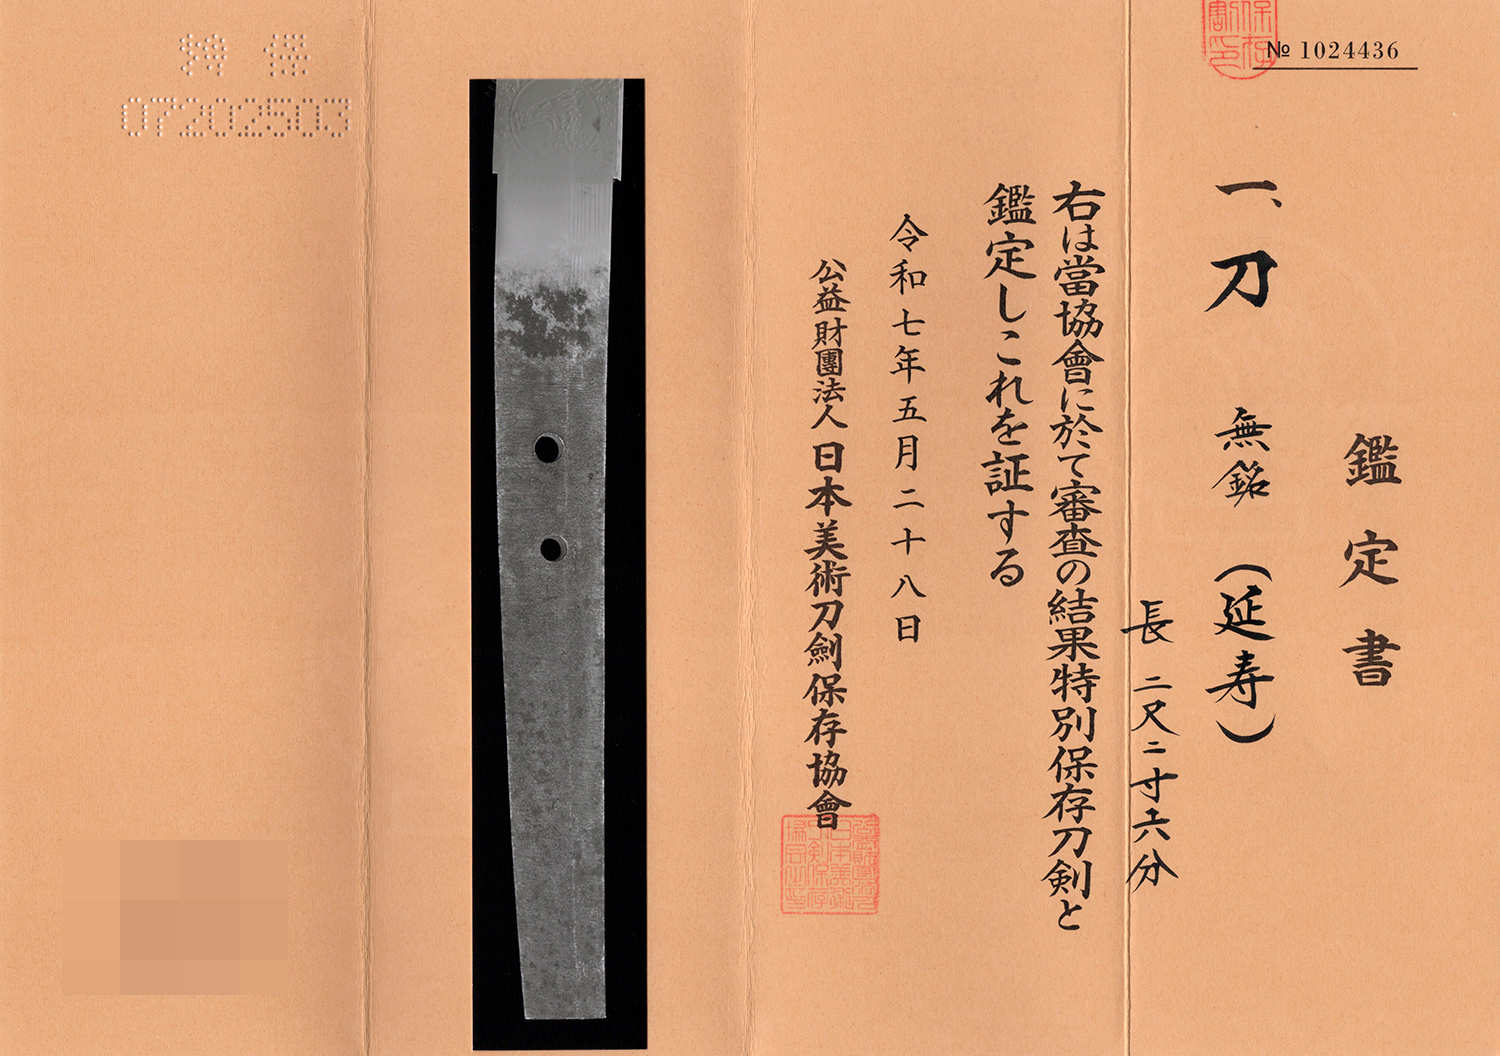 № 1024436
鑑定書
一、刀 無銘（延寿）
長 二尺二寸六分
右は當協會に於て審査の結果特別保存刀剣と
鑑定しこれを証する
令和七年五月二十八日
公益財團法人日本美術刀劍保存協會
特保
07202503